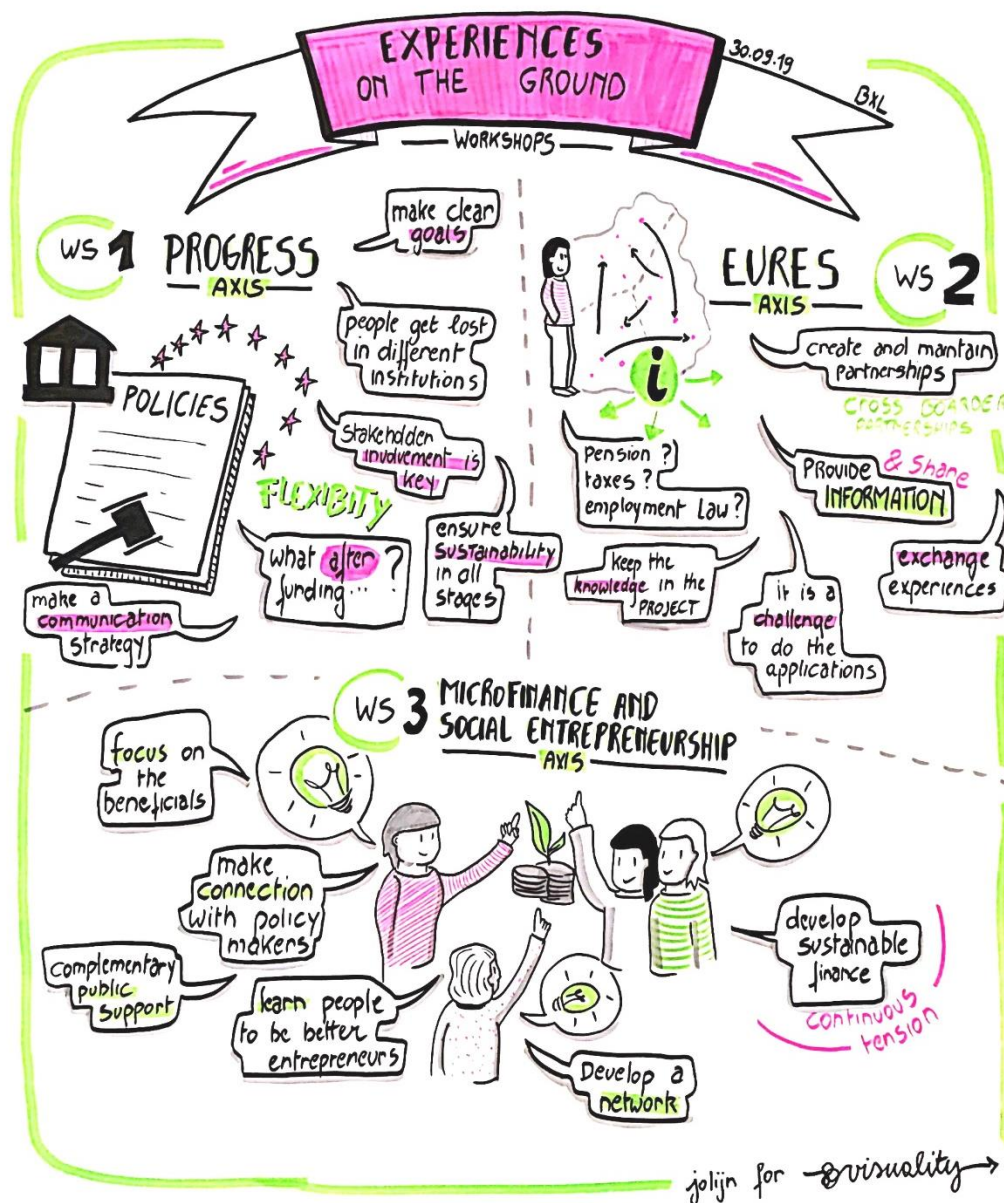 EXPERIENCES
ON THE GROUND
30.09.19
BXL
WORKSHOPS
WS 1
PROGRESS
AXIS
make clear
goals
people get lost
in different
institutions
POLICIES
Stakeholder
involvement is
key
FLEXIBITY
what after
funding ... ?
ensure
SUSTAINABILITY
in all
stages
make a
communication
strategy
EURES
AXIS
WS 2
i
create and maintain
partnerships
CROSS BOARDER
PARTNERSHIPS
pension ?
taxes ?
employment law ?
PROVIDE & Share
INFORMATION
keep the
knowledge in the
PROJECT
exchange
experiences
it is a
challenge
to do the
applications
WS 3
MICROFINANCE AND
SOCIAL ENTREPRENEURSHIP
AXIS
focus on
the
beneficials
make
connection
with policy
makers
complementary
public
support
learn people
to be better
entrepreneurs
Develop a
network
develop
sustainable
finance
continuous
tension
jolijn for visuality